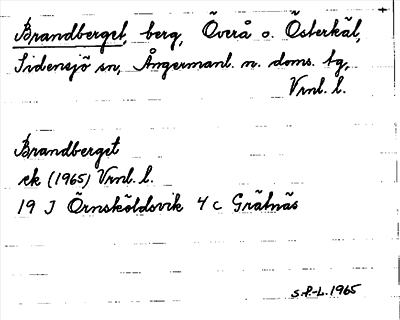 Brandberget, berg, Överå o. Österkäl,
Sidensjö sn, Ångermanl. n. doms. tg,
Vrnl. l.
Brandberget
ek (1965) Vrnl. l.
19 J Örnsköldsvik 4 c Grätnäs
S.P.-L. 1965